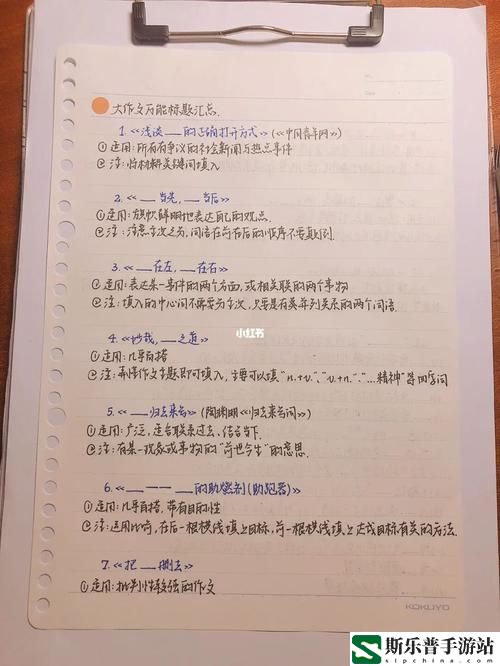 大作文万能标题汇总.
1.《浅谈__的正确打开方式》(《中国青年网》)
①适用:所有有争议的社会新闻与热点事件
②注:将材料关键词填入
2.《__当先,__当后》
①适用:旗帜鲜明地表达自己的观点.
②注:注意主次之分,词语在前在后的顺序不要颠倒.
3.《__在左,__在右》
①适用:表达某一事件的两个方面,或相关联的两个事物
②注:填入的中心词不需要分主次,只要是有着并列关系的两个词语
小红书
4.《妙哉,__之道》
①适用:几乎百搭
②注:弄懂作文主题即可填入,主要可以填"n.+v."、"v.+n."、"...精神"等四字词
5.《__归去来兮》(陶渊明《归去来兮词》)
①适用:广泛,适合联系过去、结合当下.
②注:有某一现象或事物的"前世今生"的意思.
6.《__——__的助燃剂(助跑器)》
①适用:几乎百搭,带有目的性
②注:运用比喻,在后一根横线填上目标,前一根横线填上达成目标有关的方法.
7.《把__删去》
①适用:批判性较强的作文
KOKUYO
斯乐普手游站
slpchina.com